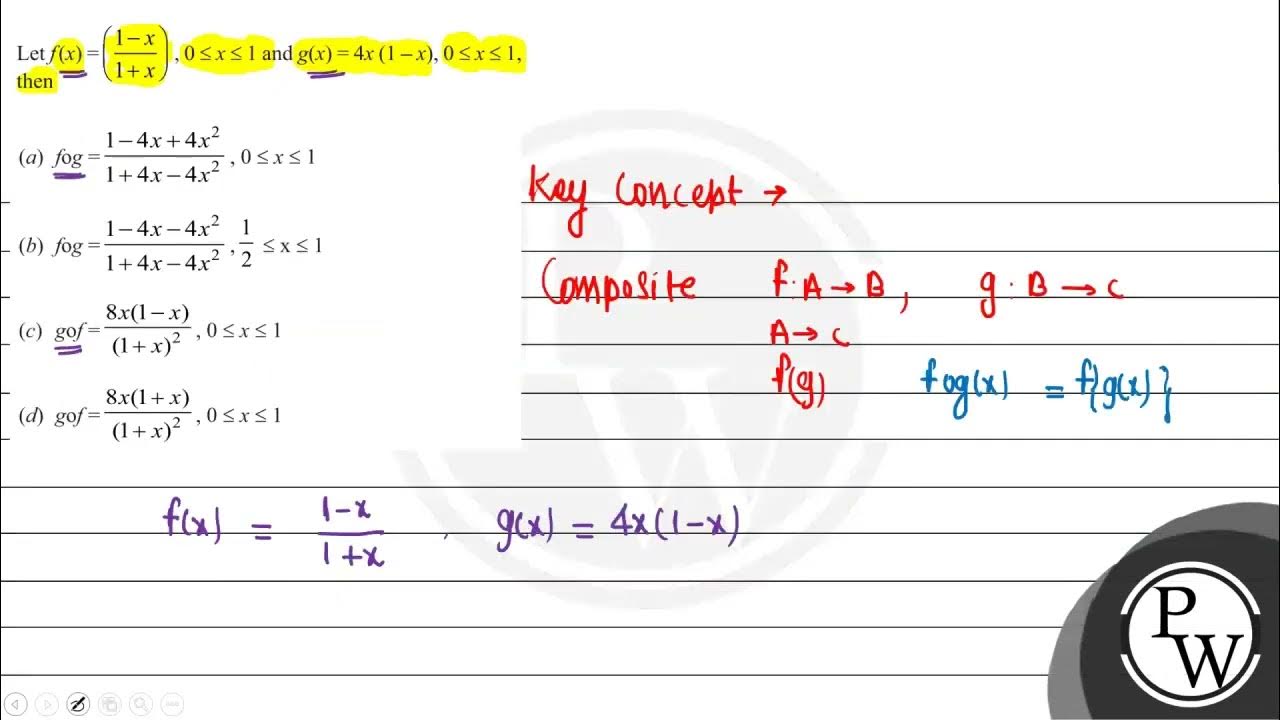 Let f(x) = ((1−x)/(1+x)), 0 ≤ x ≤ 1 and g(x) = 4x (1 – x), 0 ≤ x ≤ 1,
then
(a) fog = (1−4x+4x²)/(1+4x−4x²), 0 ≤ x ≤ 1
(b) fog = (1−4x−4x²)/(1+4x−4x²), 1/2 ≤ x ≤ 1
(c) gof = 8x(1−x)/(1+x)², 0 ≤ x ≤ 1
(d) gof = 8x(1+x)/(1+x)², 0 ≤ x ≤ 1
Key Concept →
Composite f:A→B, g:B→C
A→C
f(g) fog(x) = f{g(x)}
f(x) = (1-x)/(1+x) , g(x) = 4x(1-x)
PW
PW